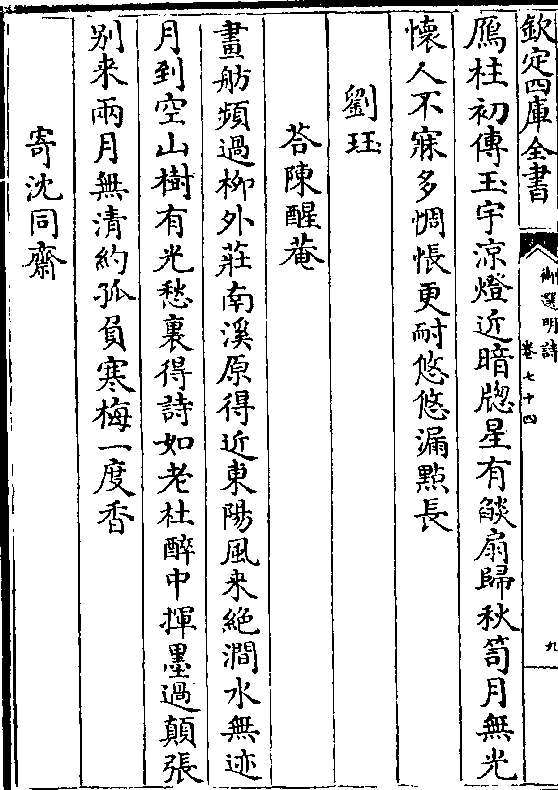 欽定四庫全書
御選明詩
卷七十四
九
鴈柱初傳玉宇涼燈近暗牕星有燄扇歸秋笥月無光
懷人不寐多惆悵更耐悠悠漏㸃長
劉珏
荅陳醒菴
畫舫頻過柳外莊南溪原得近東陽風来絶澗水無迹
月到空山樹有光愁裏得詩如老杜醉中揮墨過顛張
别来兩月無清約孤負寒梅一度香
寄沈同齋